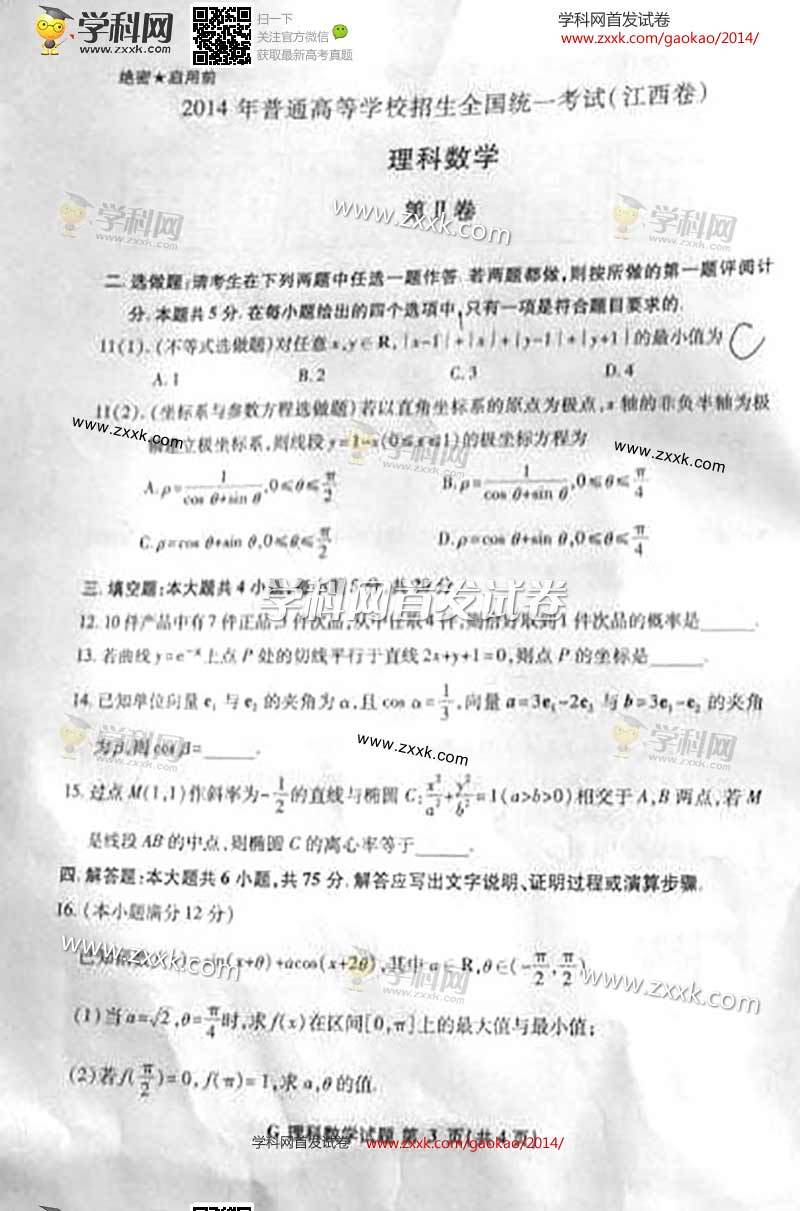 学科网
www.zxxk.com
扫一下
关注官方微信
获取最新高考真题
学科网首发试卷
www.zxxk.com/gaokao/2014/
绝密★启用前
2014 年普通高等学校招生全国统一考试(江西卷)
理科数学
第 II 卷
学科网
www.zxxk.com
学科网
二. 选做题:请考生在下列两题中任选一题作答. 若两题都做,则按所做的第一题评阅计
分. 本题共 5 分. 在每小题给出的四个选项中,只有一项是符合题目要求的.
11(1). (不等式选做题)对任意 x,y∈R, |x-1|+|x|+|y-1|+|y+1| 的最小值为 C
A. 1 B. 2 C. 3 D. 4
11(2). (坐标系与参数方程选做题)若以直角坐标系的原点为极点, x 轴的非负半轴为极
www.zxxk.com
轴建立极坐标系,则线段 y=1-x(0≤x≤1)的极坐标方程为
www.zxxk.com
A. ρ=1/(cos θ+sin θ),0≤θ≤π/2 B. ρ=1/(cos θ+sin θ),0≤θ≤π/4
C. ρ=cos θ+sin θ,0≤θ≤π/2 D. ρ=cos θ+sin θ,0≤θ≤π/4
三. 填空题:本大题共 4 小题,每小题 5 分,共 20 分.
学科网首发试卷
12. 10 件产品中有 7 件正品,3 件次品,从中任取 4 件,则恰好取到 1 件次品的概率是_____.
13. 若曲线 y=e^{-x} 上点 P 处的切线平行于直线 2x+y+1=0,则点 P 的坐标是_____.
14. 已知单位向量 e₁ 与 e₂ 的夹角为 α,且 cos α=1/3,向量 a=3e₁-2e₂ 与 b=3e₁-e₂ 的夹角
学科网
www.zxxk.com
学科网
为 β,则 cos β=_____.
15. 过点 M(1,1)作斜率为-1/2的直线与椭圆 C: x²/a²+y²/b²=1(a>b>0)相交于 A,B 两点,若 M
是线段 AB 的中点,则椭圆 C 的离心率等于_____.
四. 解答题:本大题共 6 小题,共 75 分. 解答应写出文字说明、证明过程或演算步骤.
16. (本小题满分 12 分)
www.zxxk.com
学科网
www.zxxk.com
已知函数 f(x)=sin(x+θ)+acos(x+2θ),其中 a∈R,θ∈(-π/2,π/2).
(1)当 a=√2,θ=π/4时,求 f(x)在区间[0,π]上的最大值与最小值;
(2)若 f(π/2)=0,f(π)=1,求 a,θ 的值.
G 理科数学试题 第 3 页(共 4 页)
学科网首发试卷
www.zxxk.com/gaokao/2014/